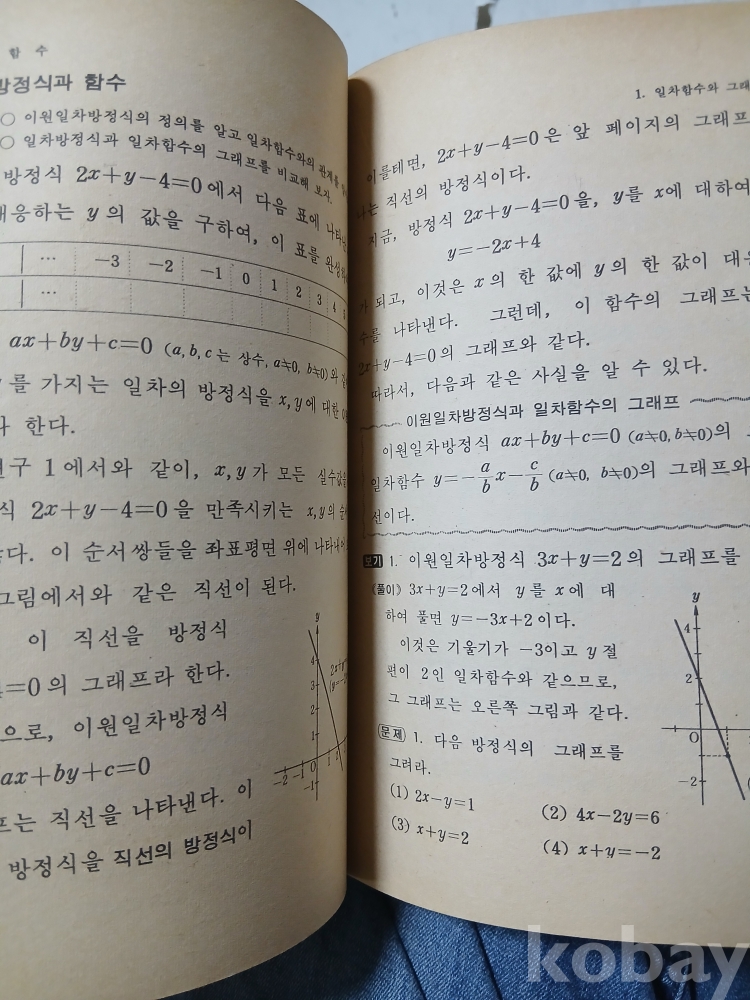 함 수
방정식과 함수
○ 이원일차방정식의 정의를 알고 일차함수와의 관계를
○ 일차방정식과 일차함수의 그래프를 비교해 보자.
방정식 2x+y−4=0에서 다음 표에 나타난
대응하는 y의 값을 구하여, 이 표를
… −3 −2 −1 0 1 2 3 4 5
…
ax+by+c=0 (a, b, c는 상수, a≠0, b≠0)와
를 가지는 일차의 방정식을 x, y에 대한
라 한다.
1에서와 같이, x, y가 모든 실수값을
식 2x+y−4=0을 만족시키는 x, y의
다. 이 순서쌍들을 좌표평면 위에 나타내어
그림에서와 같은 직선이 된다.
이 직선을 방정식
4=0의 그래프라 한다.
으로, 이원일차방정식
ax+by+c=0
프는 직선을 나타낸다. 이
방정식을 직선의 방정식이
y
4
3
2
1
−2 −1 0 1
−1
1. 일차함수와 그래
이를테면, 2x+y−4=0은 앞 페이지의 그래프
나는 직선의 방정식이다.
지금, 방정식 2x+y−4=0을, y를 x에 대하여
y=−2x+4
가 되고, 이것은 x의 한 값에 y의 한 값이 대응
수를 나타낸다. 그런데, 이 함수의 그래프는
2x+y−4=0의 그래프와 같다.
따라서, 다음과 같은 사실을 알 수 있다.
이원일차방정식과 일차함수의 그래프
이원일차방정식 ax+by+c=0 (a≠0, b≠0)의
일차함수 y=−a/b x−c/b (a≠0, b≠0)의 그래프와
선이다.
보기 1. 이원일차방정식 3x+y=2의 그래프를
《풀이》 3x+y=2에서 y를 x에 대
하여 풀면 y=−3x+2이다.
이것은 기울기가 −3이고 y절
편이 2인 일차함수와 같으므로,
그 그래프는 오른쪽 그림과 같다.
y
4
2
O
−2
문제 1. 다음 방정식의 그래프를
그려라.
(1) 2x−y=1
(2) 4x−2y=6
(3) x+y=2
(4) x+y=−2
kobay